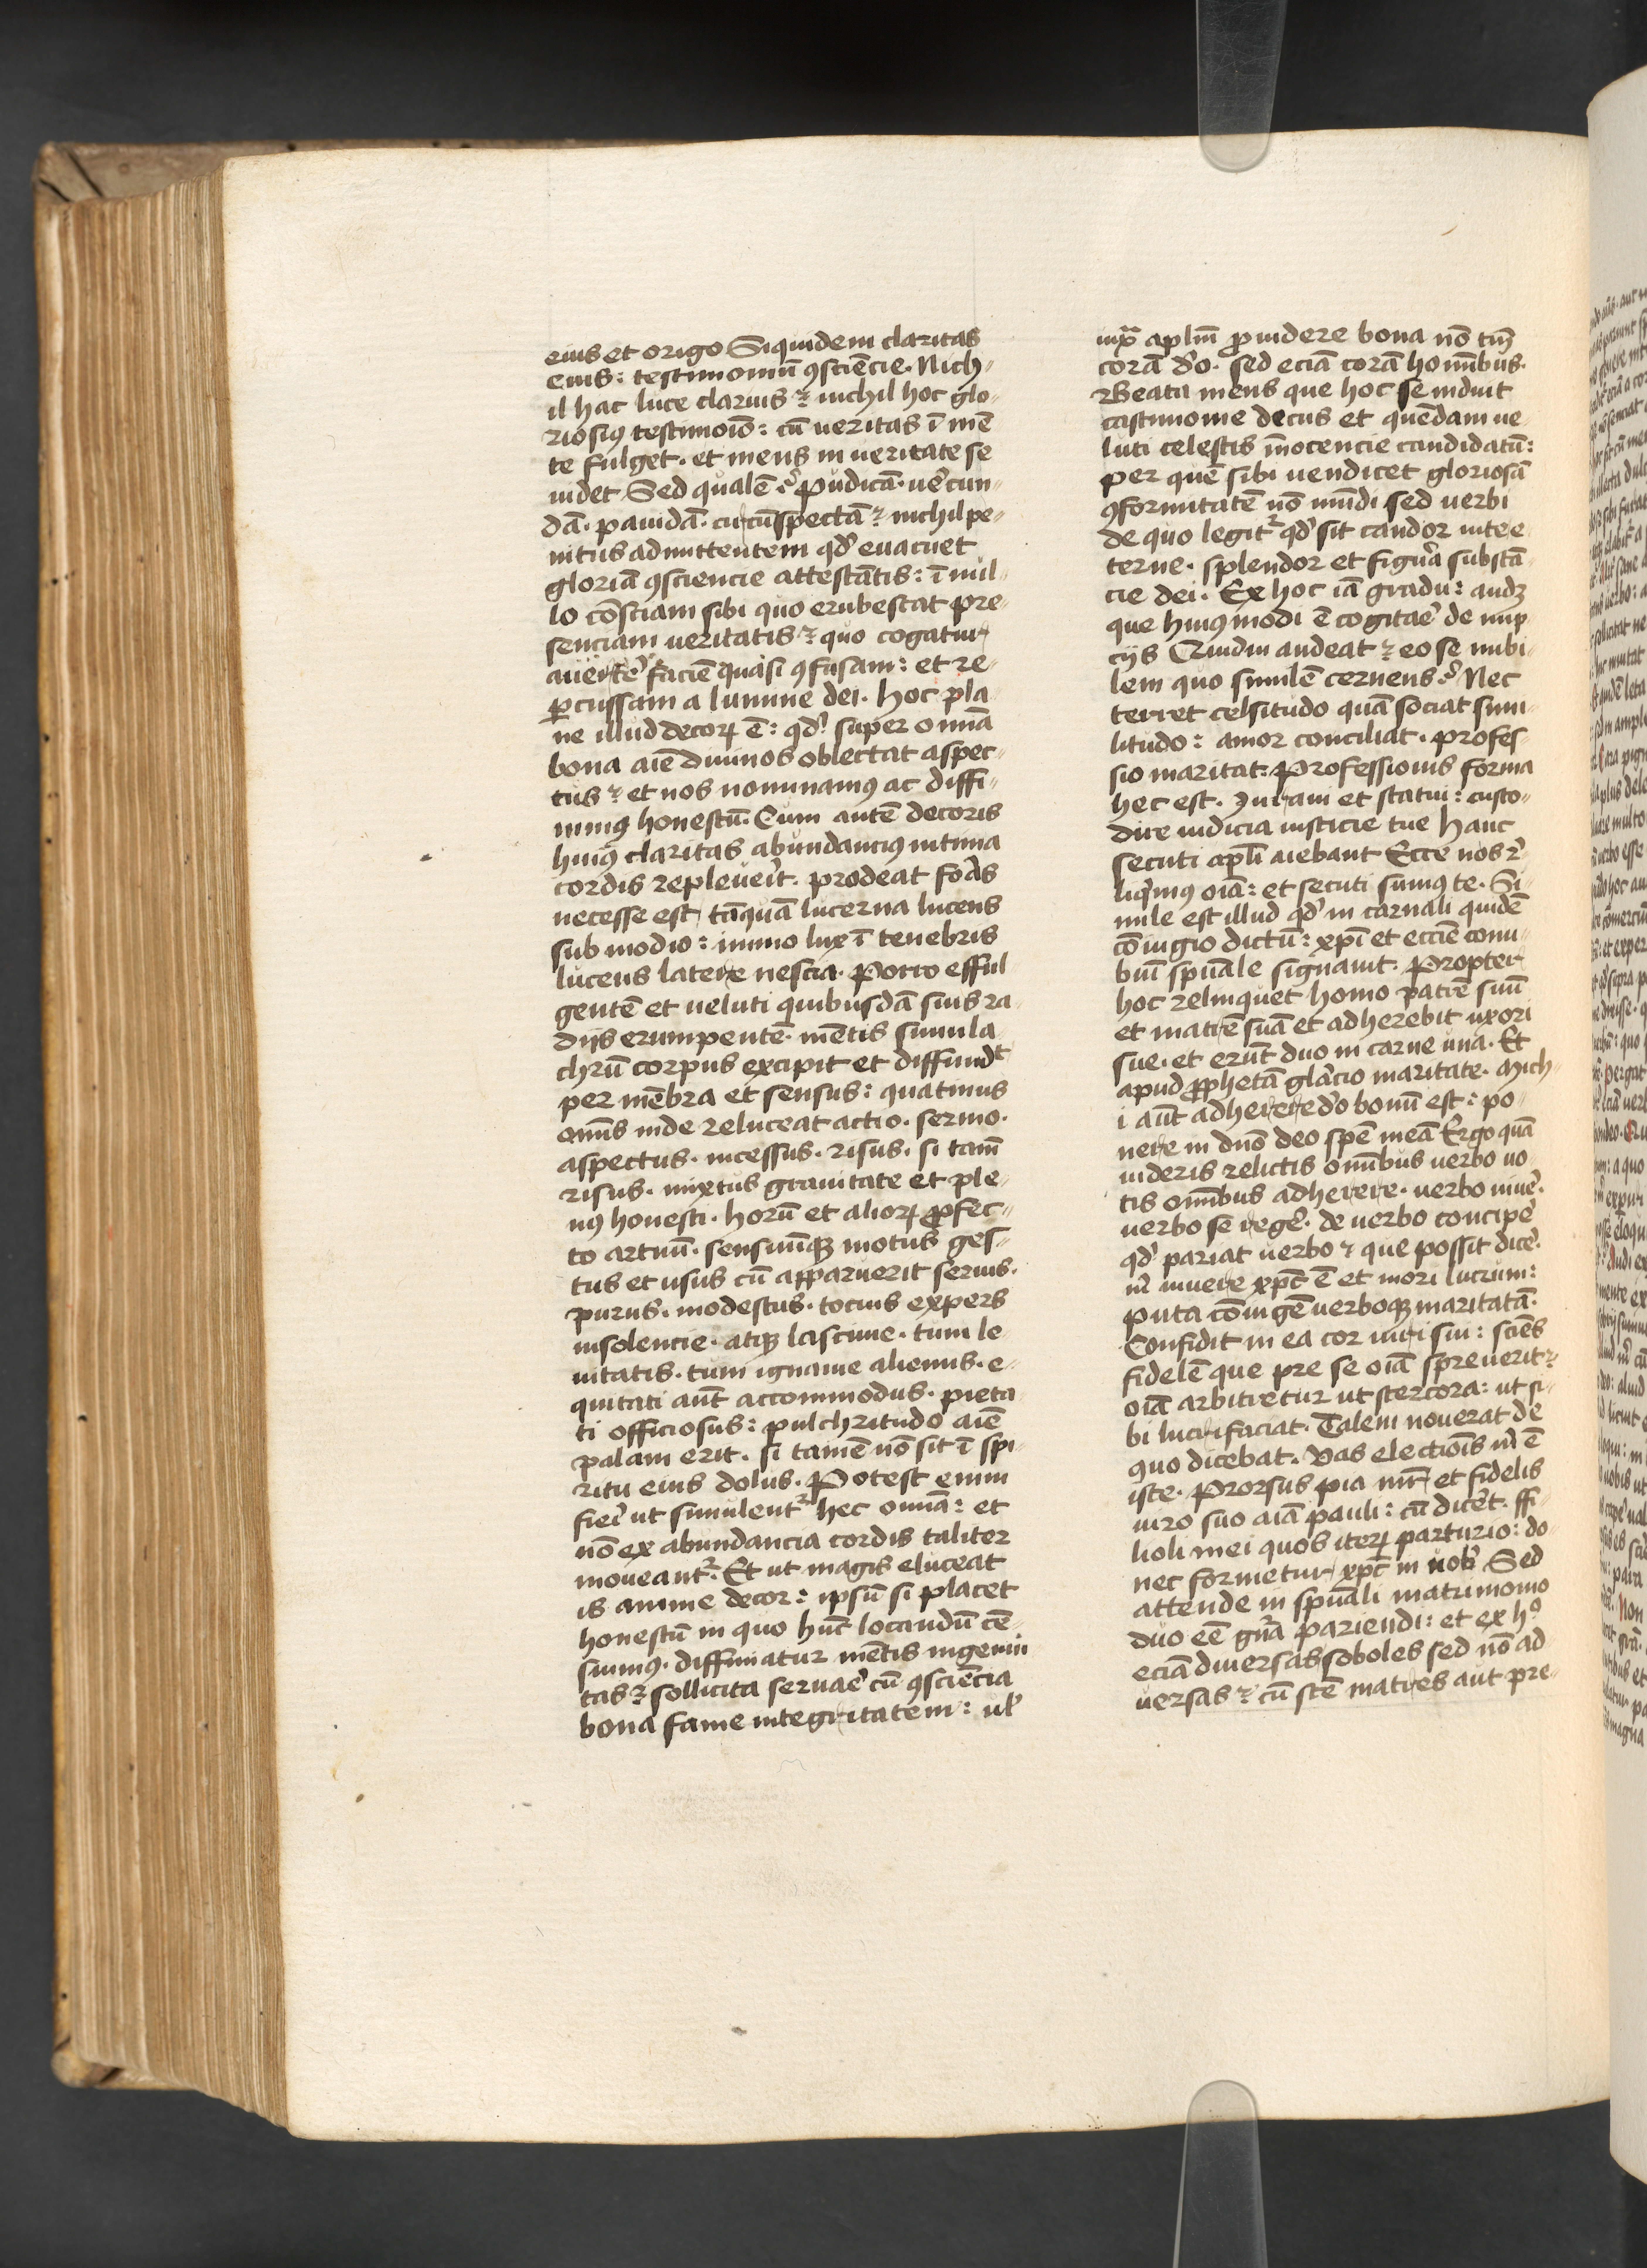 eius et origo Siquidem claritas
eius: testimoniū ꝯsciēcie. Nich-
il hac luce clarius ⁊ nichil hoc glo-
riosiꝰ testimoīo: cū ueritas ī mē
te fulget. et mens in ueritate se
uidet Sed qualē? pudicā. uerecun-
dā. pauidā. circūspectā ⁊ nichil pe-
nitus admittentem qd' euacuet
gloriā ꝯsciencie attestātis: ī nul-
lo cōsciam sibi quo erubescat pre-
senciam ueritatis ⁊ quo cogatur
auerte' faciē quasi ꝯfusam: et re-
ꝑcussam a lumine dei. hoc pla-
ne illud decoꝝ ē: qd' super omīa
bona aīe diuinos oblectat aspec-
tus ⁊ et nos nominamꝰ ac diffi-
nimꝰ honestū. Cum autē decoris
huiꝰ claritas abundanciꝰ intima
cordis repleueit. prodeat foas
necesse est tāquā lucerna lucens
sub modio: immo lux ī tenebris
lucens latere nescia. Porro efful-
gentē et ueluti quibusdā suis ra-
diis erumpentē. mētis simula
chrū corpus excipit et diffundt
per mēbra et sensus: quatinus
omīs inde reluceat actio. sermo.
aspectus. incessus. risus. si tamē
risus. mixtus grauitate et ple-
nꝰ honesti. horū et alioꝝ ꝓfec-
to artuū. sensuūqꝫ motus ges-
tus et usus cū apparuerit serius.
purus. modestus. tocius expers
insolencie. atqꝫ lasciuie. tum le
uitatis. tum ignauie alienus. e-
quitati aūt accommodus. pieta
ti officiosus: pulchritudo aīe
palam erit. si tamē nō sit ī spi-
ritu eius dolus. Potest enim
fiei ut simulent' hec omīa: et
nō ex abundancia cordis taliter
moueant'. Et ut magis eluceat
is anime decor: ipsū si placet
honestū in quo hūc locandū cē-
suimꝰ. diffiniatur mētis ingenui
tas ⁊ sollicita seruae' cū ꝯsciēcia
bona fame integritatem: ul'
iuxª aplm̄ ꝓuidere bona nō tm̄
corā d'o. sed eciā corā hominibus.
Beata mens que hoc se induit
castimonie decus et quēdam ue
luti celestis īnocencie candidatū:
per quē sibi uendicet gloriosā
ꝯformitatē nō mūdi sed uerbi
de quo legit' qd' sit candor uite e
terne. splendor et figura substā
cie dei. Ex hoc iā gradu: audꝫ
que huiꝰmodi ē cogitae' de nup
ciis Quidni audeat ⁊ eo se nubi-
lem quo similē cernens? Nec
terret celsitudo quā sociat simi-
litudo: amor conciliat. profes-
sio maritat: Professionis forma
hec est. Iuraui et statui: custo-
dire iudicia iusticie tue Hanc
secuti apl'i aiebant Ecce nos r'
liqimꝰ oīa: et secuti sumꝰ te. Si-
mile est illud qd' in carnali quidē
cōiugio dictū: xpī et eccīe conu-
biū spūale signauit. Propter
hoc relinquet homo patrē suū
et matrē suā et adherebit uxori
sue. et erūt duo in carne una. Et
apud ꝓphetā gl'acio maritate. Mich
i aūt adherere d'o bonū est: po-
nere in dn̄o deo spē meā Ergo quā
uideris relictis omībus uerbo uo-
tis omībus adherere. uerbo uiue'.
uerbo se rege'. de uerbo concipe'
qd' pariat uerbo ⁊ que possit dice'.
m' uiuere xpc̄ ē et mori lucrum:
puta cōiugē uerboqꝫ maritatā.
Confidit in ea cor uiri sui: sciēs
fidelē que pre se oīa spreuerit ⁊
oīa arbitretur ut stercora: ut si-
bi lucrifaciat. Talem nouerat de
quo dicebat. Vas electiōis m' ē
iste. Prorsus pia mr̄ et fidelis
uiro suo aīa pauli: cū dicēt. ffi-
lioli mei quos iteꝝ parturio: do-
nec formetur xpc̄ in uob' Sed
attende in spūali matrimonio
duo eē gn̄a pariendi: et ex hº
eciā diuersas soboles sed nō ad
uersas ⁊ cū scē matres aut pre-